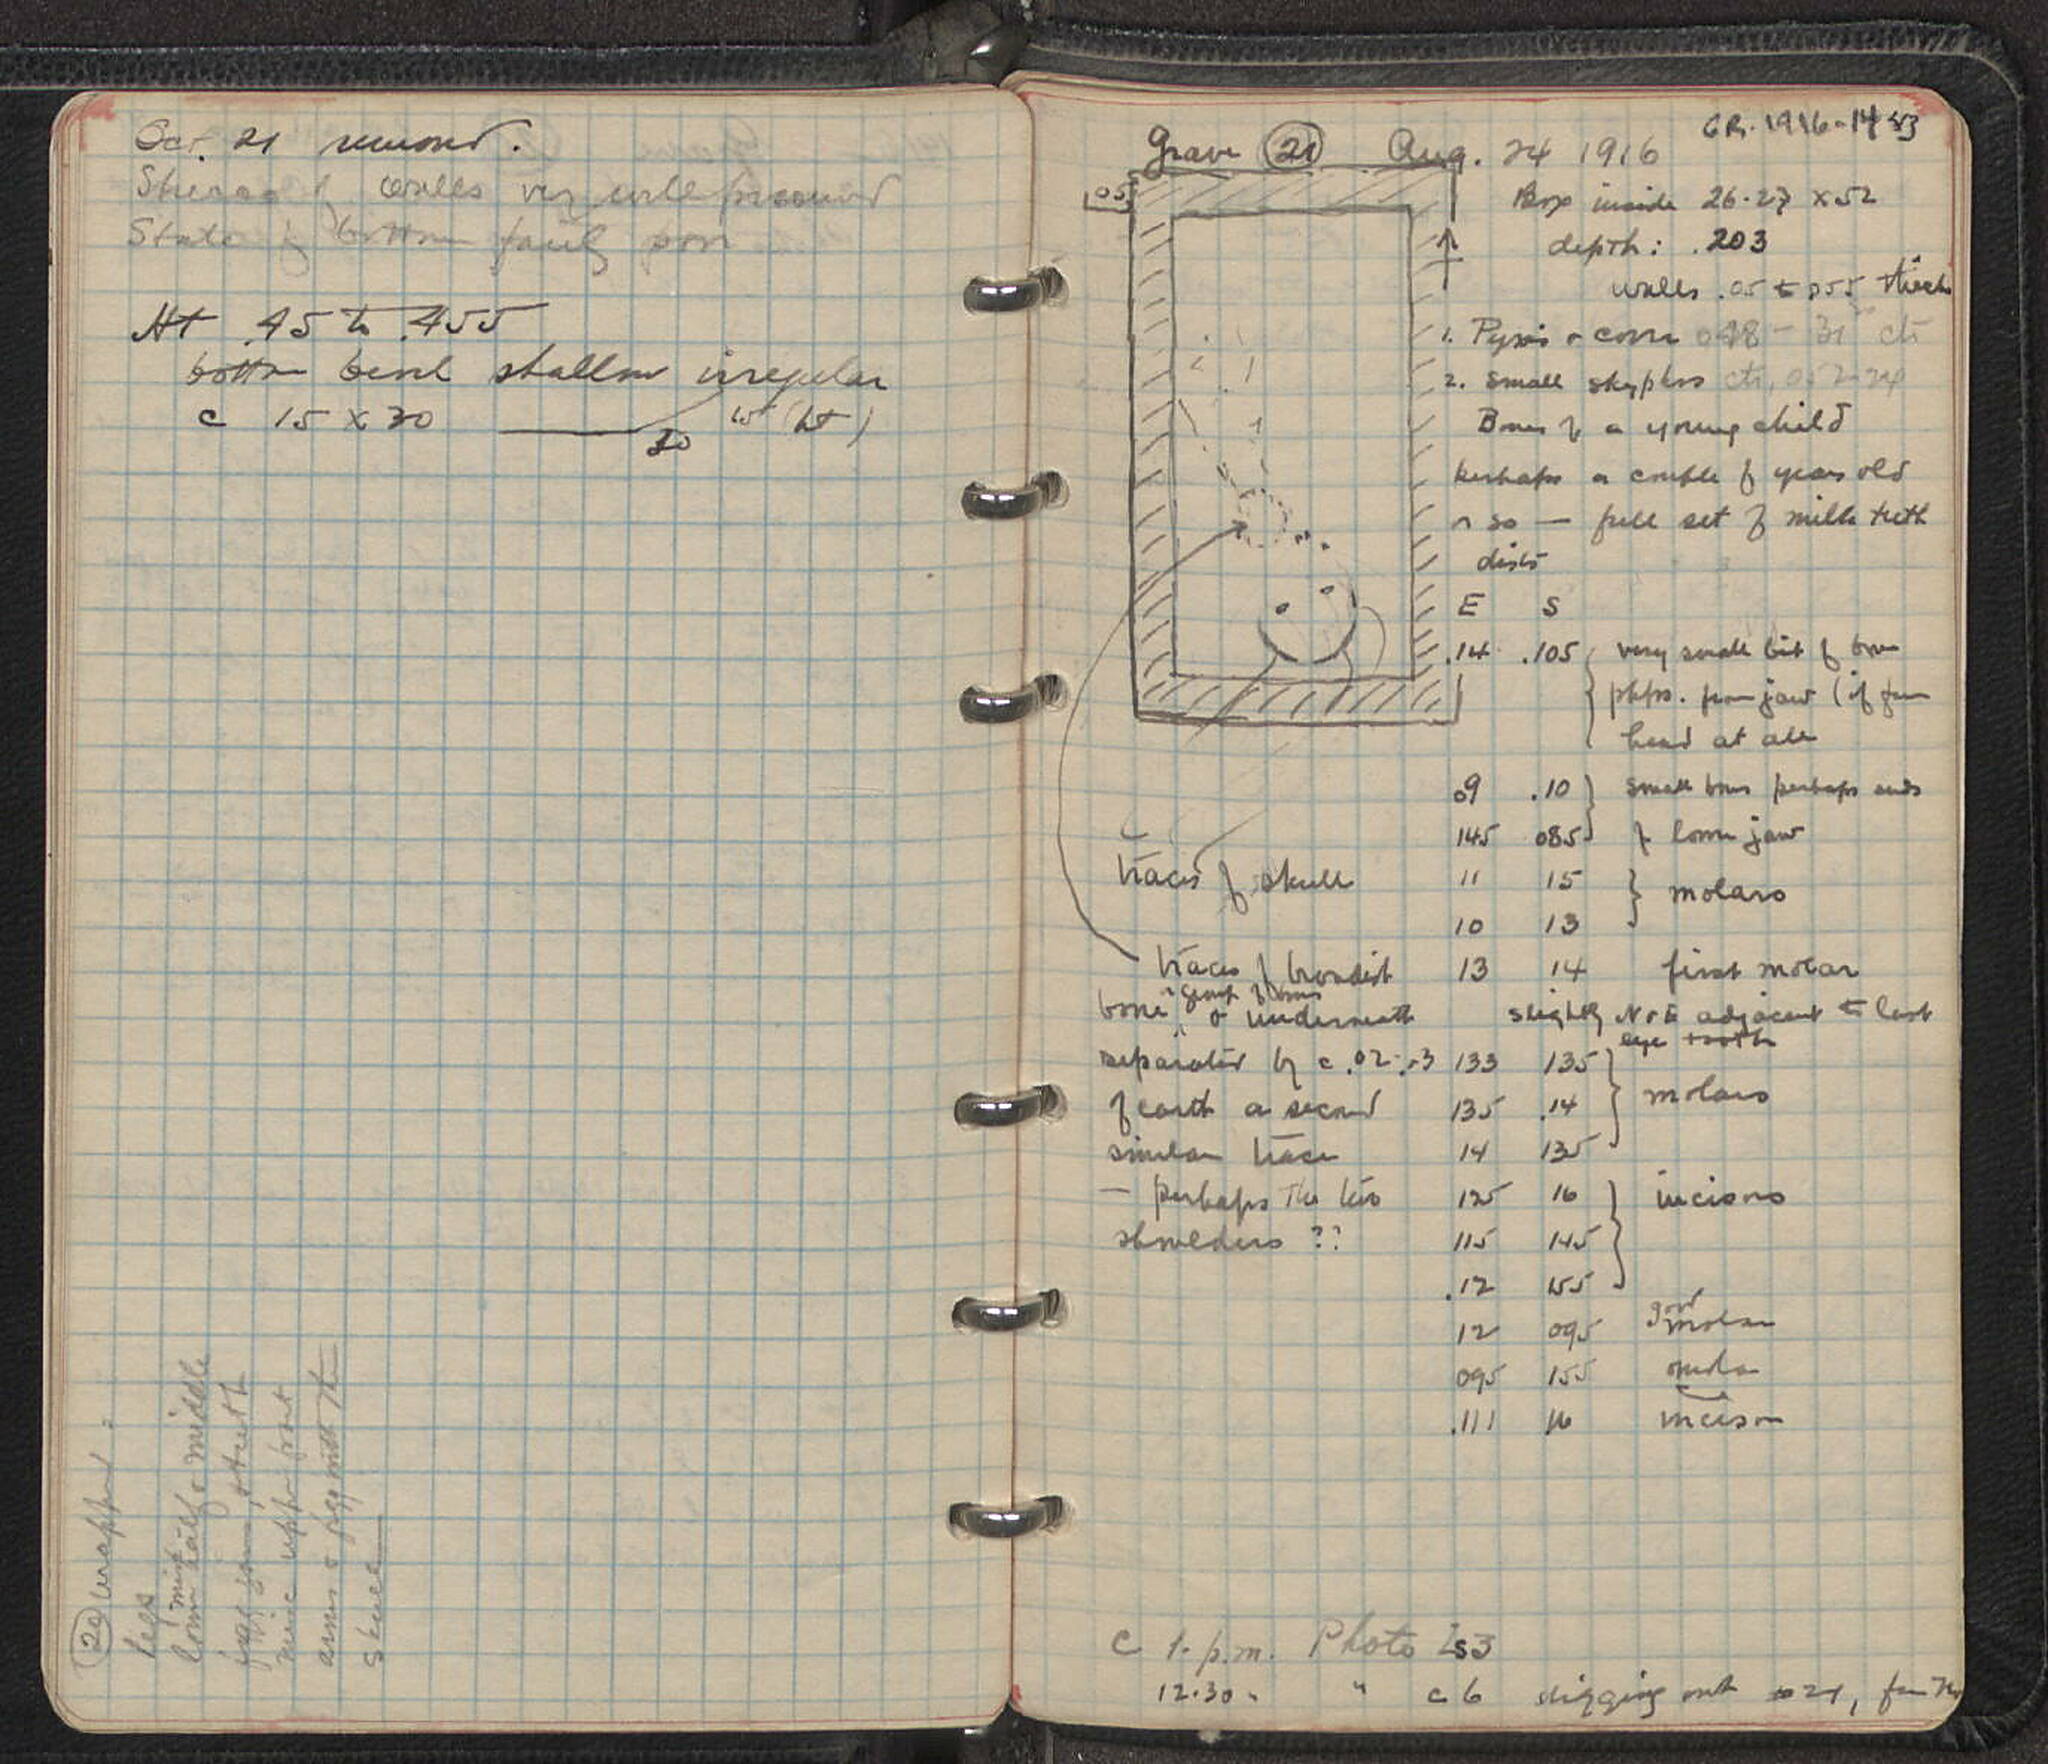 Oct. 21 removed.
walls very well preserved
State of bottom fairly poor
Ht .45 to .455
bottom bevel shallow irregular
c 15 x 30
30 15 (ht)
20 wrapped:
legs
lower half & middle
& teeth
upper front
arms &
skull
GR. 1916-14
Grave 21 Aug. 24 1916
.05
Box inside 26-27 x 52
depth: .203
walls .05 to 055 thick
1. Pyxis & cover
2. Small skyphos
Bones of a young child
perhaps a couple of years old
or so — full set of milk teeth
dists
E S
.14 .105 very small bit of bone
phps. from jaw (if from
head at all
09 .10 small bones perhaps ends
145 085 of lower jaw
traces of skull
11 15 molars
10 13
13 14 first molar
slightly N & E adjacent to last
eye tooth
133 135 molars
135 .14
14 135
125 16 incisors
115 145
.12 155
12 095 good molar
095 155 molar
.111 16 incisor
traces of broadest
bone or group of bones & underneath
separated by c .02-.03
of earth a second
similar trace
— perhaps the two
shoulders ??
c 1. p.m. Photo
12.30 " " c 6 digging out 21, from